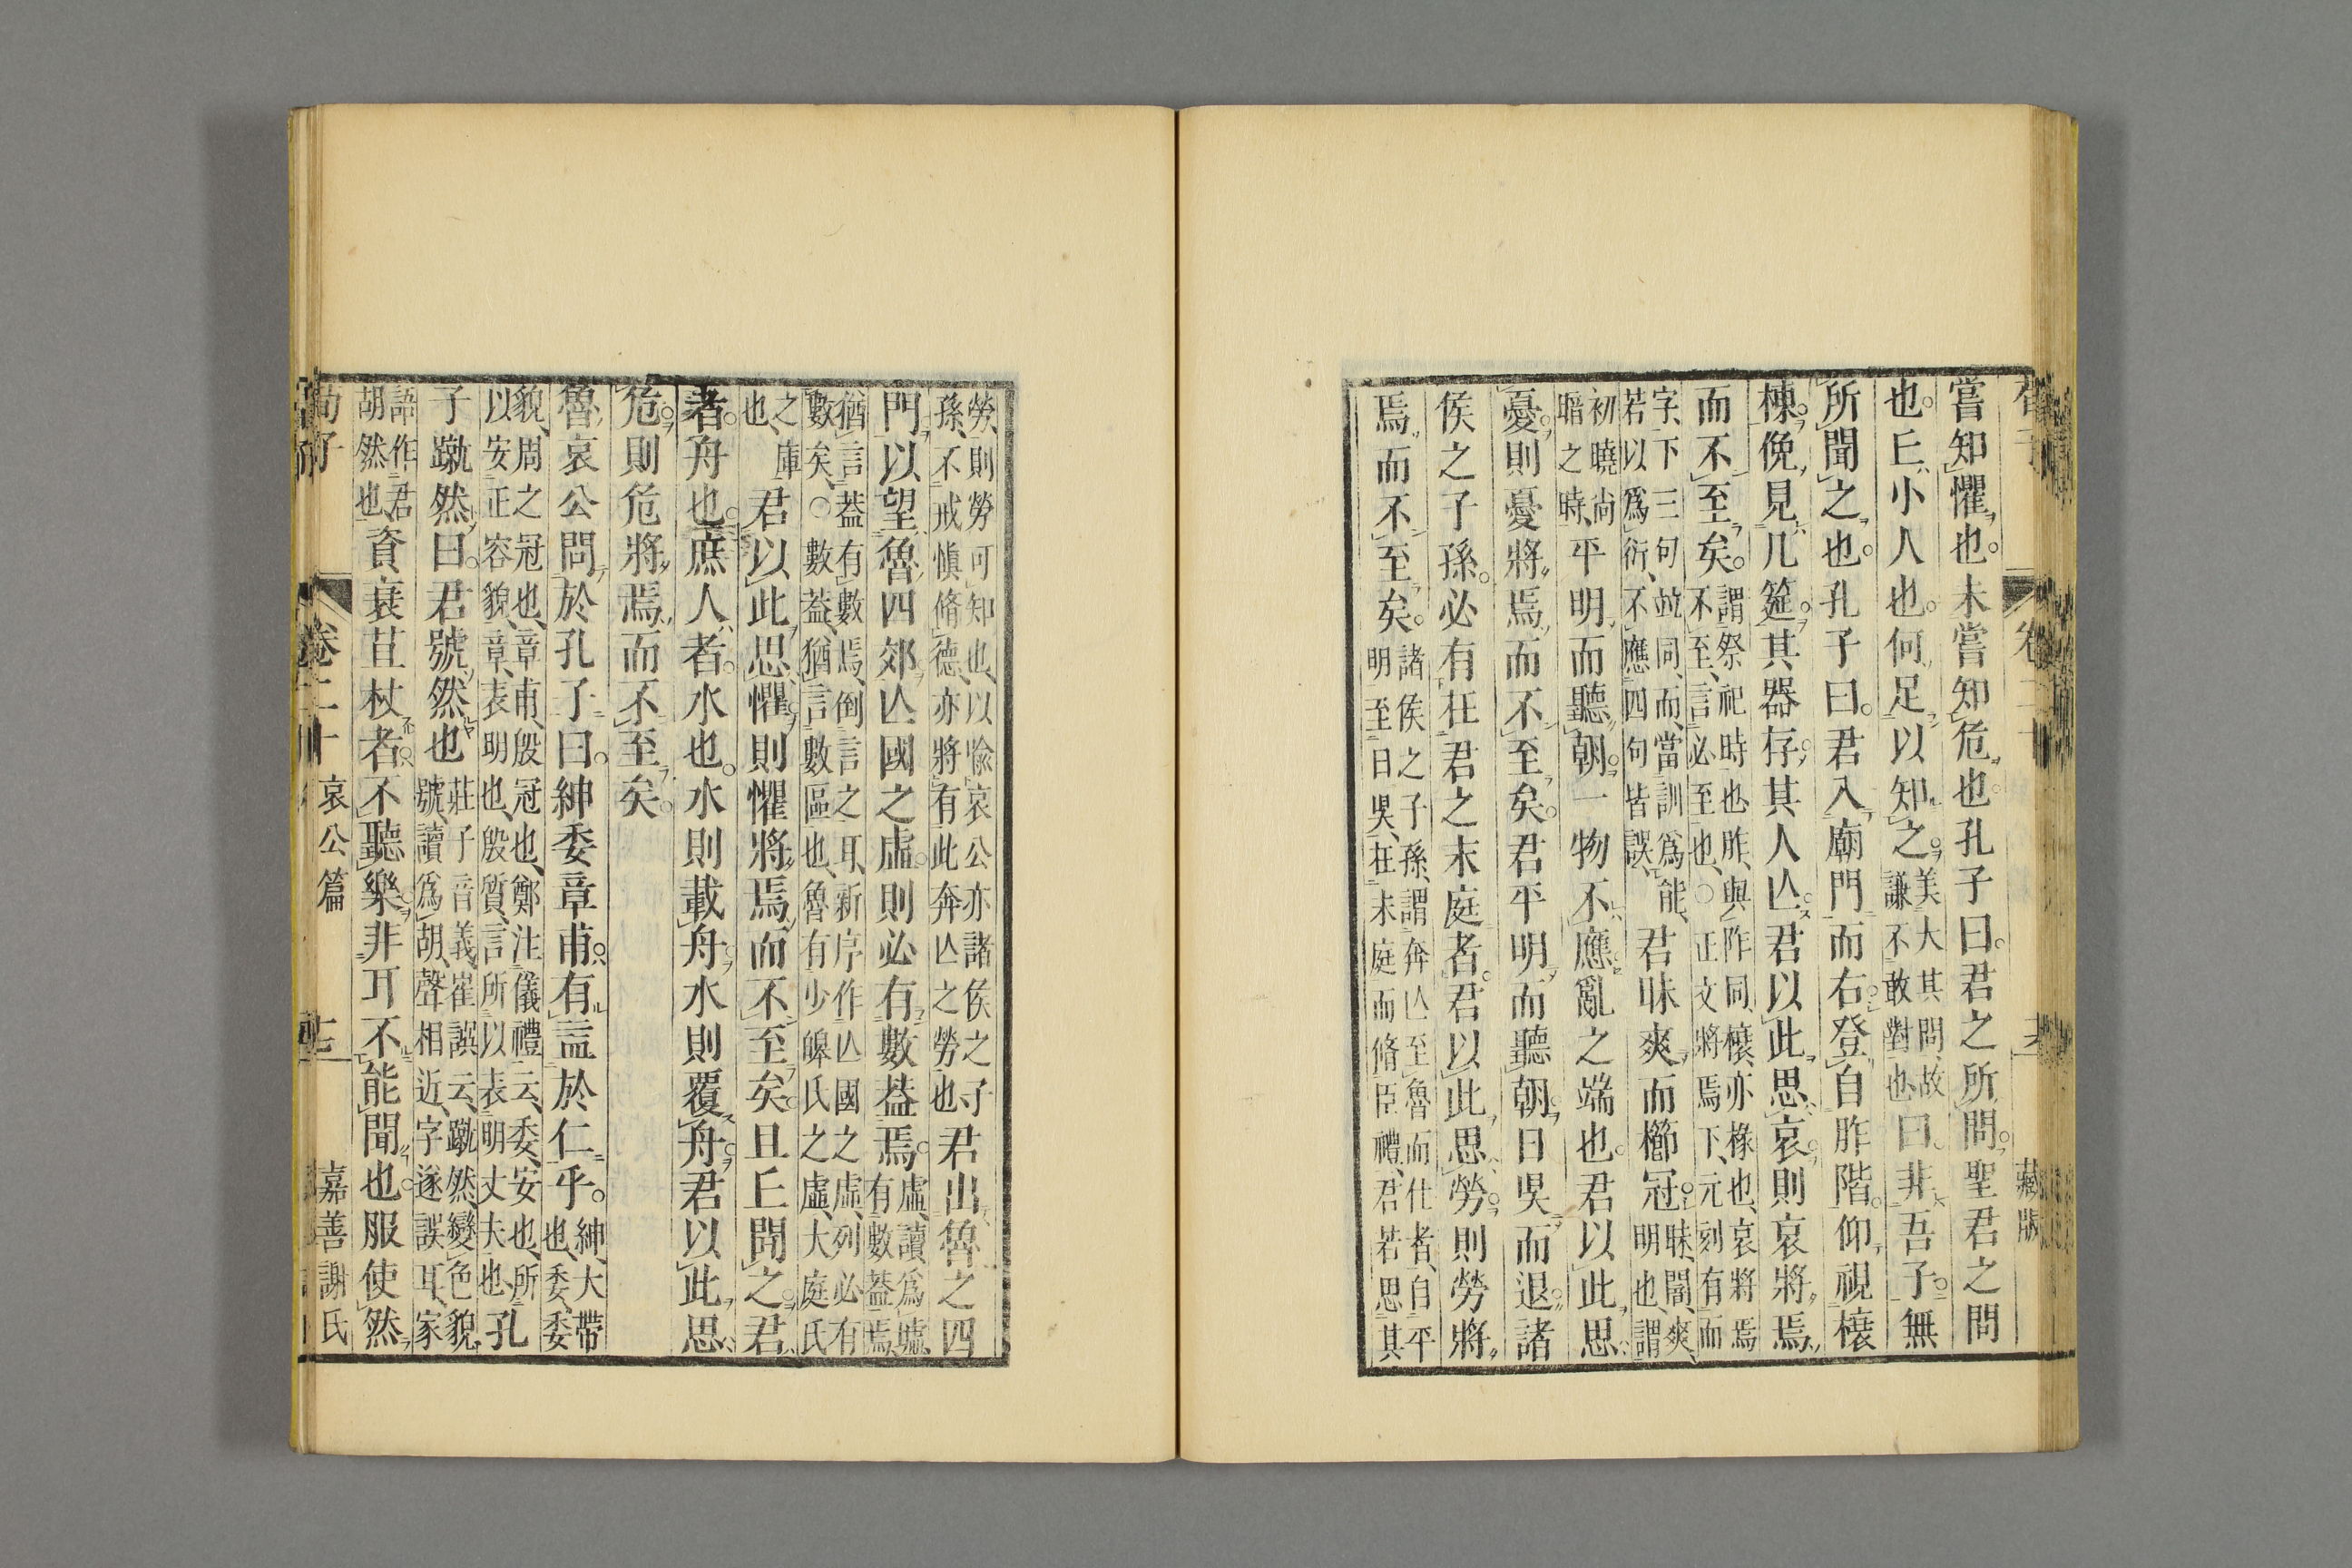 嘗知懼也。未嘗知危也。孔子曰。君之所問。聖君之問
也。丘小人也。何足以知之。美大其問、故謙不敢對也、曰。非吾子。無
所聞之也。孔子曰。君入廟門而右。登自胙階。仰視榱
棟。俛見几筵。其器存。其人亾。君以此思哀。則哀將焉
而不至矣。謂祭祀時也、胙、與阼同、榱、亦椽也、哀將焉不至、言必至也、○正文將焉下、元刻有而
字、下三句竝同、而、當訓爲能、若以爲衍、不應四句皆誤、君昧爽而櫛冠。昧、闇、爽、明也、謂
初曉尚暗之時、平明而聽朝。一物不應。亂之端也。君以此思
憂。則憂將焉而不至矣。君平明而聽朝。日昃而退。諸
侯之子孫。必有在君之末庭者。君以此思勞。則勞將
焉而不至矣。諸侯之子孫、謂奔亾至魯而仕者、自平明至日昃、在末庭而脩臣禮、君若思其
勞、則勞可知也、以喩哀公亦諸侯之子孫、不戒愼脩德、亦將有此奔亾之勞也、君出魯之四
門。以望魯四郊。亾國之虛。則必有數葢焉。虛、讀爲墟、有數葢焉、
猶言葢有數焉、倒言之耳、新序作亾國之虛、列必有數矣、○數葢、猶言數區也、魯有少皥氏之虛、大庭氏
之庫也、君以此思懼。則懼將焉而不至矣。且丘聞之。君
者。舟也。庶人者。水也。水則載舟。水則覆舟。君以此思
危。則危將焉而不至矣。
魯哀公問於孔子曰。紳委章甫。有益於仁乎。紳、大帶也、委、委
貌、周之冠也、章甫、殷冠也、鄭注儀禮云、委、安也、所以安正容貌、章、表明也、殷質、言所以表明丈夫也、孔
子蹴然曰。君號然也莊子音義崔譔云、蹴然、變色貌、號、讀爲胡、聲相近、字遂誤耳、家
語作君胡然也、資衰苴杖者。不聽樂。非耳不能聞也。服使然
荀子 卷二十 哀公篇 嘉善謝氏